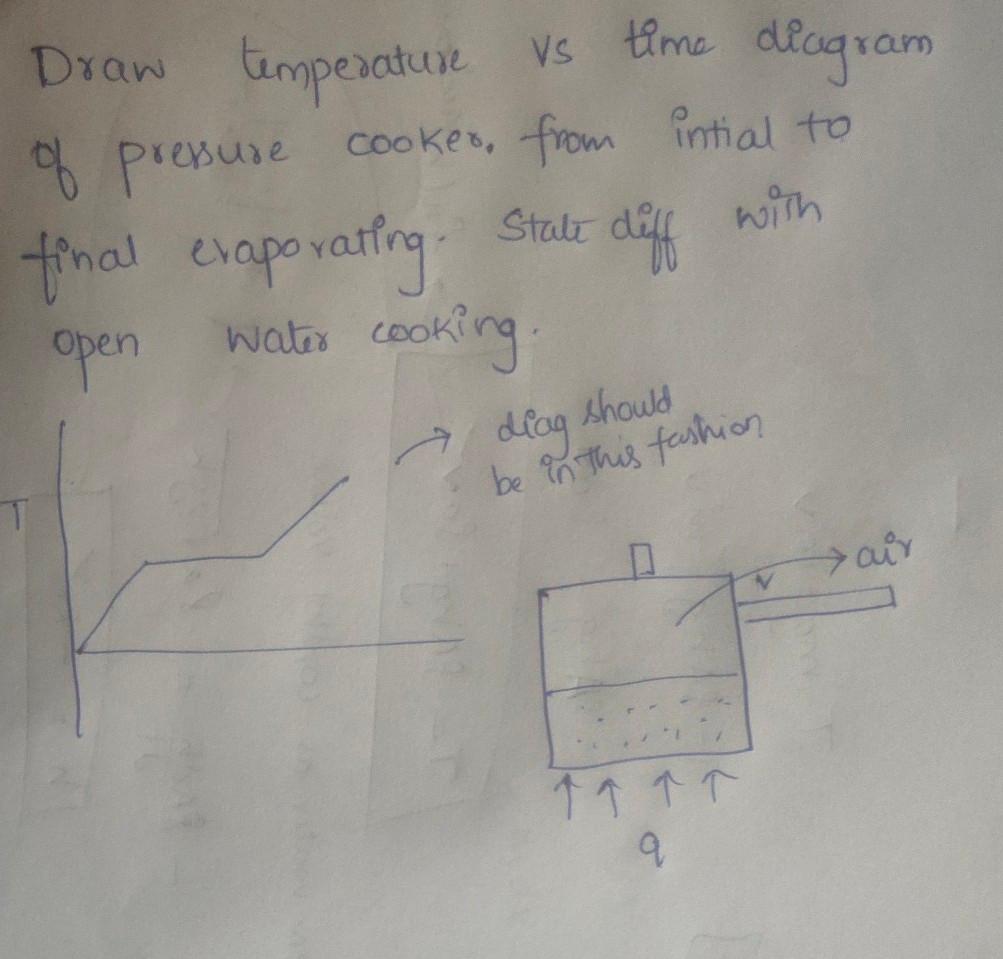 Draw temperature vs time diagram
of pressure cooker. from intial to
final evaporating. State diff with
open water cooking.
diag should
be in this fashion
T
air
q